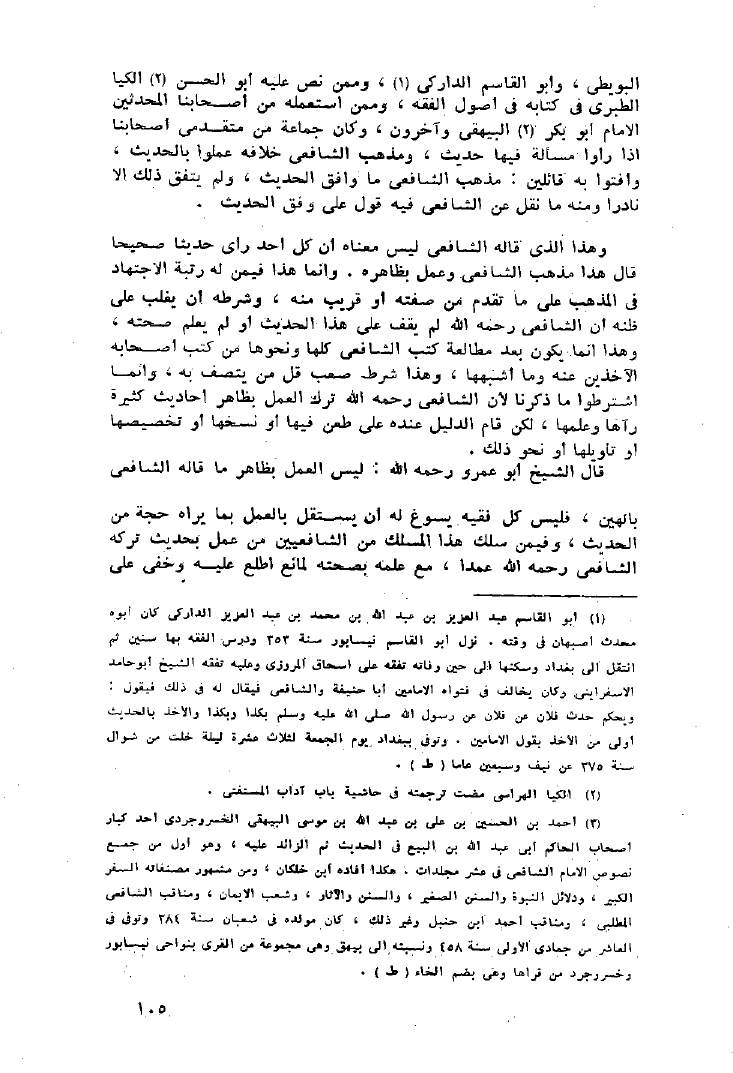 البويطى ، وأبو القاسم الداركى (١) ، وممن نص عليه أبو الحسن (٢) الكيا
الطبرى فى كتابه فى أصول الفقه ، وممن استعمله من أصحابنا المحدثين
الامام أبو بكر (٢) البيهقى وآخرون ، وكان جماعة من متقدمى أصحابنا
اذا رأوا مسألة فيها حديث ، ومذهب الشافعى خلافه عملوا بالحديث ،
وافتوا به قائلين : مذهب الشافعى ما وافق الحديث ، ولم يتفق ذلك الا
نادرا ومنه ما نقل عن الشافعى فيه قول على وفق الحديث .
وهذا الذى قاله الشافعى ليس معناه أن كل أحد رأى حديثا صحيحا
قال هذا مذهب الشافعى وعمل بظاهره . وانما هذا فيمن له رتبة الاجتهاد
فى المذهب على ما تقدم من صفته أو قريب منه ، وشرطه أن يغلب على
ظنه أن الشافعى رحمه الله لم يقف على هذا الحديث أو لم يعلم صحته ،
وهذا انما يكون بعد مطالعة كتب الشافعى كلها ونحوها من كتب أصحابه
الآخذين عنه وما أشبهها ، وهذا شرط صعب قل من يتصف به ، وانما
اشترطوا ما ذكرنا لأن الشافعى رحمه الله ترك العمل بظاهر أحاديث كثيرة
رآها وعلمها ، لكن قام الدليل عنده على طعن فيها أو نسخها أو تخصيصها
أو تأويلها أو نحو ذلك .
قال الشيخ أبو عمرو رحمه الله : ليس العمل بظاهر ما قاله الشافعى
بالهين ، فليس كل فقيه يسوغ له أن يستقل بالعمل بما يراه حجة من
الحديث ، وفيمن سلك هذا المسلك من الشافعيين من عمل بحديث تركه
الشافعى رحمه الله عمدا ، مع علمه بصحته لمانع اطلع عليه وخفى على
(١) أبو القاسم عبد العزيز بن عبد الله بن محمد بن عبد العزيز الداركى كان أبوه
محدث أصبهان فى وقته . نزل أبو القاسم نيسابور سنة ٣٥٣ ودرس الفقه بها سنين ثم
انتقل الى بغداد وسكنها الى حين وفاته تفقه على اسحاق المروزى وعليه تفقه الشيخ أبوحامد
الاسفراينى وكان يخالف فى فتواه الامامين أبا حنيفة والشافعى فيقال له فى ذلك فيقول :
ويحكم حدث فلان عن فلان عن رسول الله صلى الله عليه وسلم بكذا وبكذا والأخذ بالحديث
أولى من الأخذ بقول الامامين . وتوفى ببغداد يوم الجمعة لثلاث عشرة ليلة خلت من شوال
سنة ٣٧٥ عن نيف وسبعين عاما ( ط ) .
(٢) الكيا الهراسى مضت ترجمته فى حاشية باب آداب المستفتى .
(٣) أحمد بن الحسين بن على بن عبد الله بن موسى البيهقى الخسروجردى أحد كبار
أصحاب الحاكم أبى عبد الله بن البيع فى الحديث ثم الزائد عليه ، وهو أول من جمع
نصوص الامام الشافعى فى عشر مجلدات . هكذا أفاده ابن خلكان ، ومن مشهور مصنفاته السفر
الكبير ، ودلائل النبوة والسنن الصغير ، والسنن والآثار ، وشعب الايمان ، ومناقب الشافعى
المطلبى ، ومناقب أحمد ابن حنبل وغير ذلك ، كان مولده فى شعبان سنة ٢٨٤ وتوفى فى
العاشر من جمادى الأولى سنة ٤٥٨ ونسبته الى بيهق وهى مجموعة من القرى بنواحى نيسابور
وخسروجرد من قراها وهى بضم الخاء ( ط ) .
١٠٥